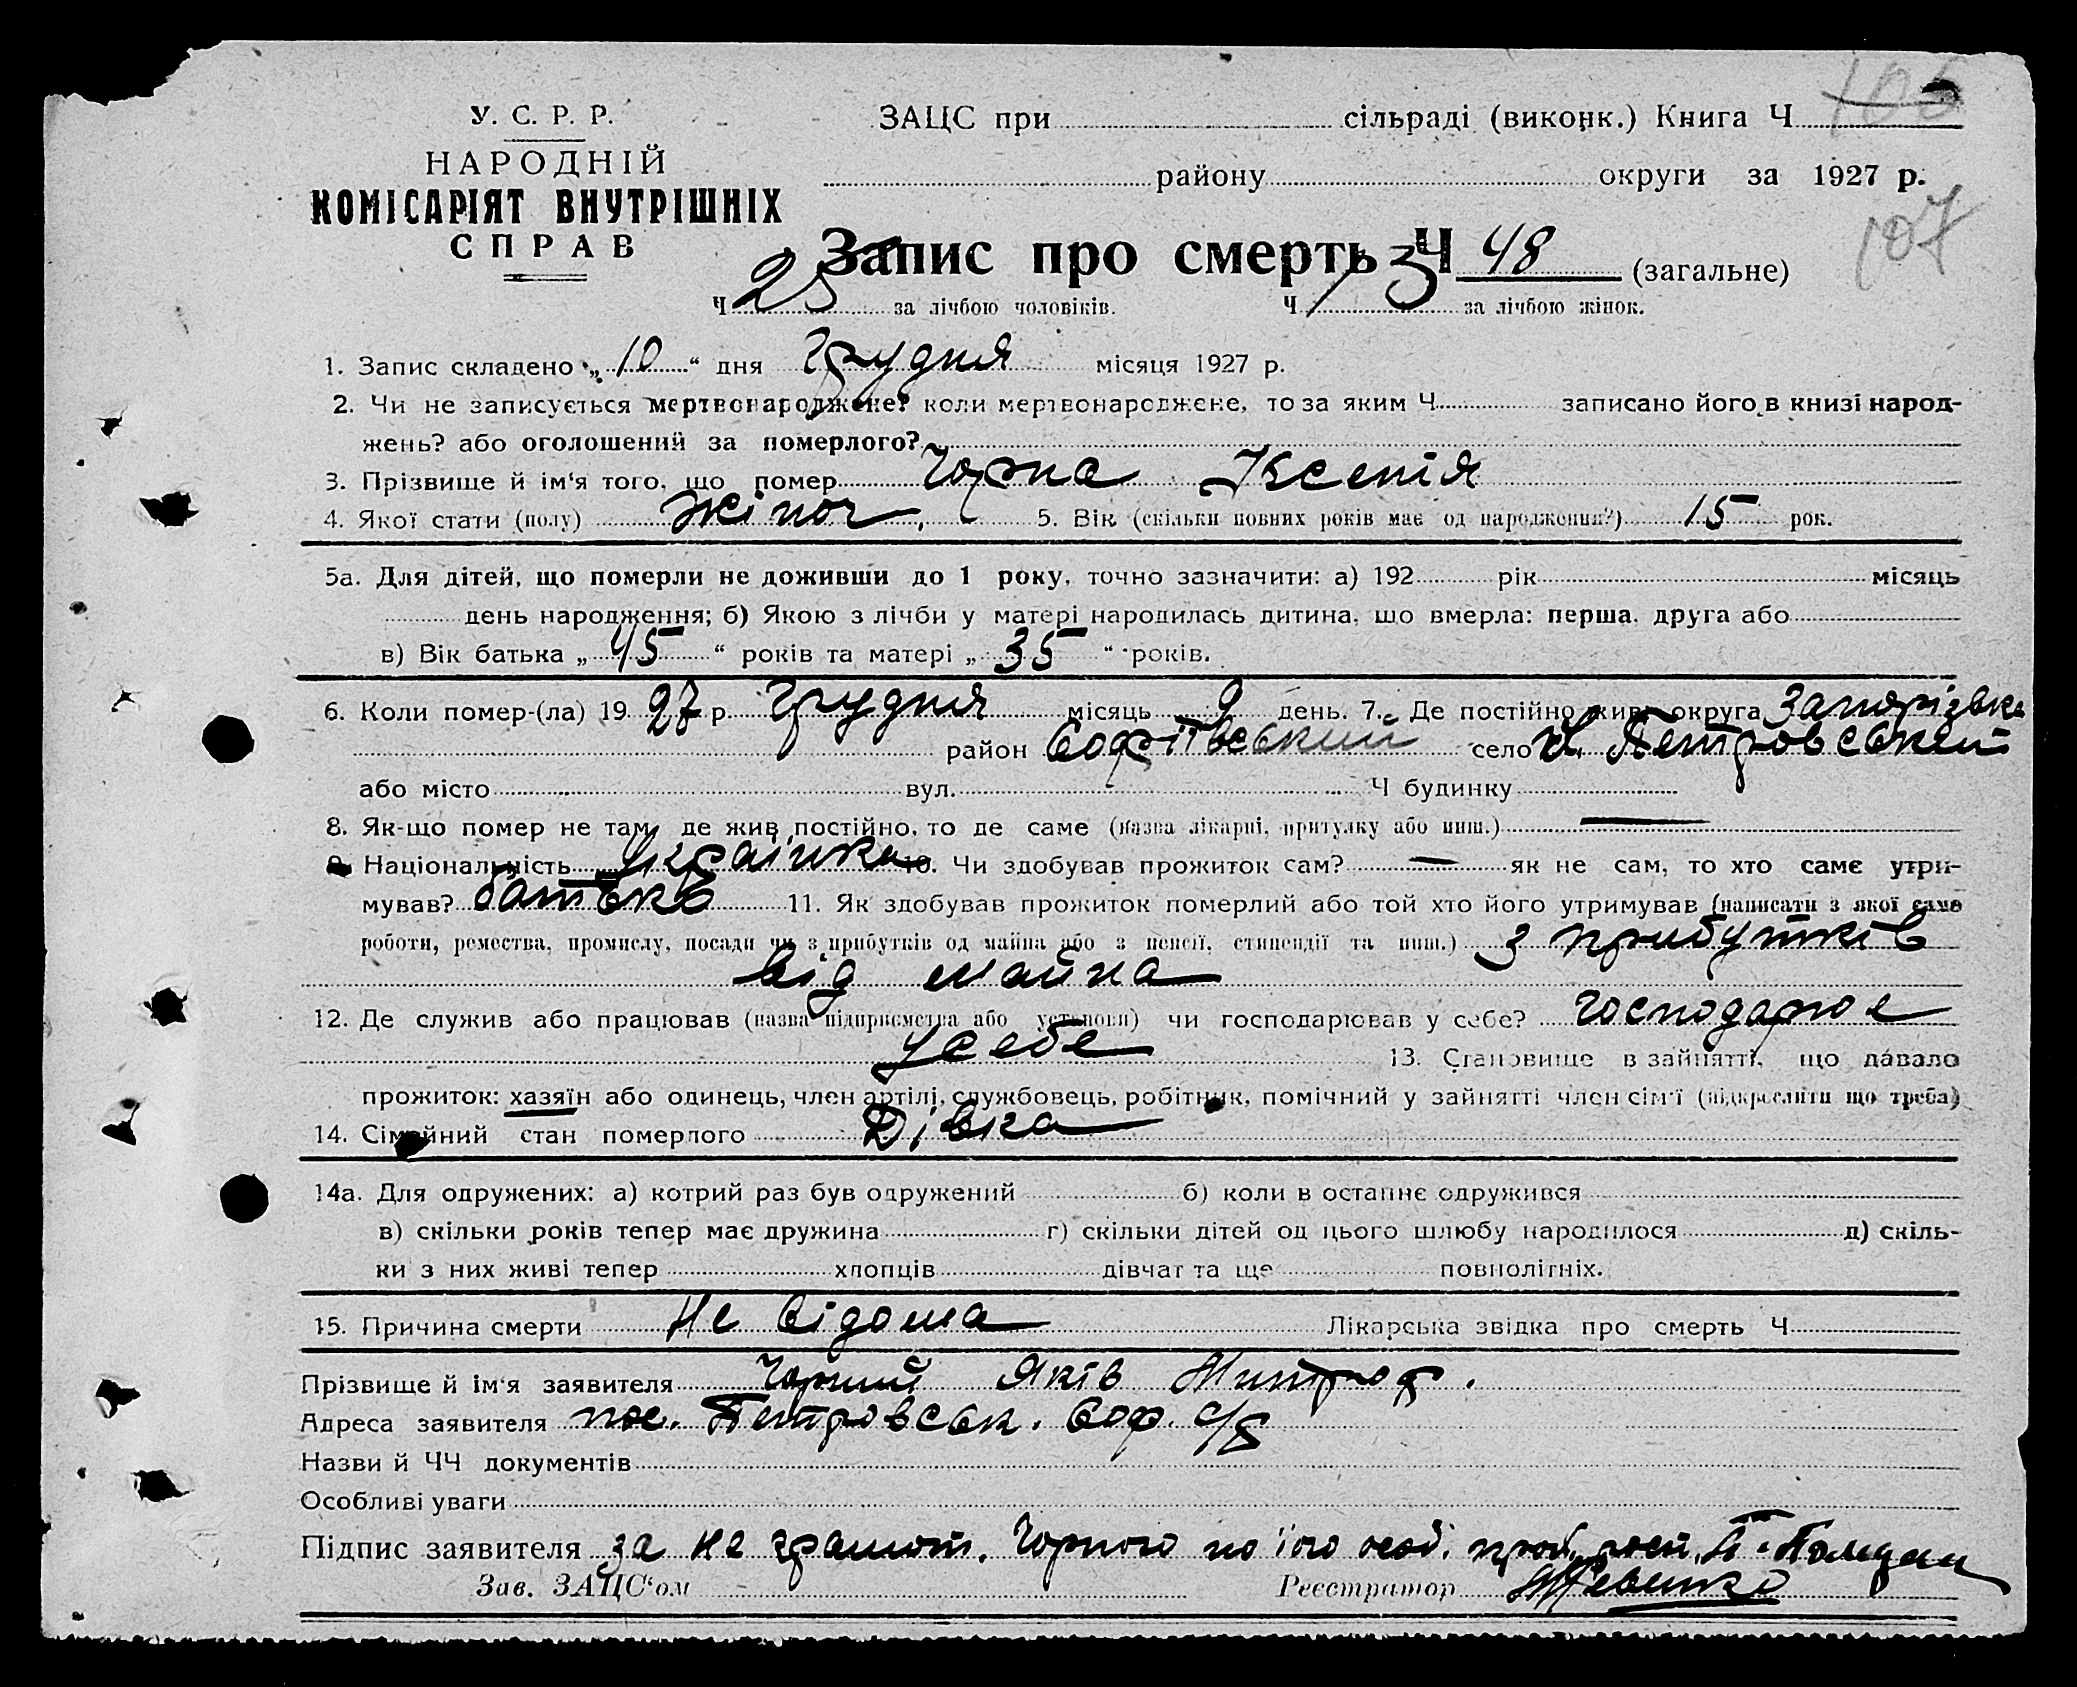 У. С. Р. Р.
НАРОДНІЙ
КОМІСАРІЯТ ВНУТРІШНІХ
СПРАВ
ЗАЦС при сільраді (виконк.) Книга Ч 106
району округи за 1927 р.
107
Запис про смерть Ч 48 (загальне)
Ч 25 за лічбою чоловіків. Ч 23 за лічбою жінок.
1. Запис складено „10“ дня Грудня місяця 1927 р.
2. Чи не записується мертвонароджене? коли мертвонароджене, то за яким Ч записано його в книзі народ-
жень? або оголошений за померлого?
3. Прізвище й ім'я того, що помер Чорна Ксенія
4. Якої стати (полу) жіноч. 5. Вік (скільки повних років має од народження?) 15 рок.
5а. Для дітей, що померли не доживши до 1 року, точно зазначити: а) 192 рік місяць
день народження; б) Якою з лічби у матері народилась дитина, що вмерла: перша, друга або
в) Вік батька „45“ років та матері „35“ років.
6. Коли помер-(ла) 1927 р. Грудня місяць 9 день. 7. Де постійно жив: округа Запорізька
район Софіївський село Петровський
або місто вул. Ч будинку
8. Як-що помер не там, де жив постійно, то де саме (назва лікарні, притулку або инш.) —
9. Національність Українка 10. Чи здобував прожиток сам? — як не сам, то хто саме утри-
мував? батько 11. Як здобував прожиток померлий або той хто його утримував (написати з якої саме
роботи, ремества, промислу, посади чи з прибутків од майна або з пенсії, стипендії та инш.) з прибутків
від майна
12. Де служив або працював (назва підприємства або установи) чи господарював у себе? господарює
у себе 13. Становище в зайнятті, що давало
прожиток: хазяїн або одинець, член артілі, службовець, робітник, помічний у зайнятті член сім'ї (підкреслити що треба)
14. Сімейний стан померлого Дівка
14а. Для одружених: а) котрий раз був одружений б) коли в останнє одружився
в) скільки років тепер має дружина г) скільки дітей од цього шлюбу народилося д) скіль-
ки з них живі тепер хлопців дівчат та ще повнолітніх.
15. Причина смерти Не відома Лікарська звідка про смерть Ч
Прізвище й ім'я заявителя Чорний Яків Митроф.
Адреса заявителя пос. Петровськ. Соф. с/р
Назви й ЧЧ документів
Особливі уваги
Підпис заявителя за не грамот. Чорного по його особ.
Зав. ЗАЦС'ом Реєстратор